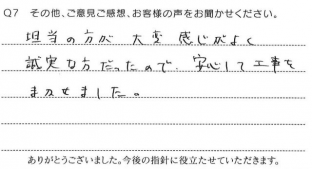 Q7 その他、ご意見ご感想、お客様の声をお聞かせください。
担当の方が 大変 感じがよく
誠実な方だったので、安心して工事を
まかせました。
ありがとうございました。今後の指針に役立たせていただきます。